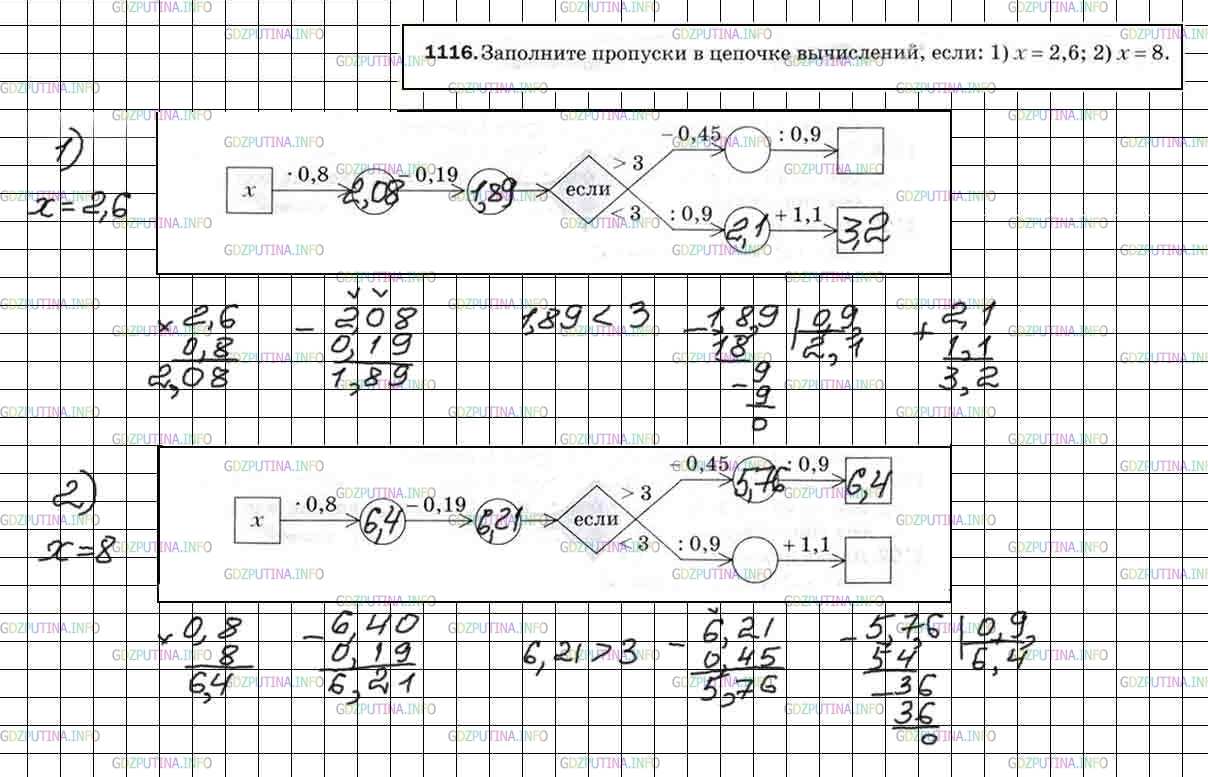 1116. Заполните пропуски в цепочке вычислений, если: 1) x = 2,6; 2) x = 8.
1)
x = 2,6
x · 0,8 2,08 – 0,19 1,89 если
> 3 – 0,45 : 0,9
< 3 : 0,9 2,1 + 1,1 3,2
× 2,6
0,8
2,08
– 2,08
0,19
1,89
1,89 < 3
– 1,8,9 | 0,9,
18 2,1
– 9
9
0
+ 2,1
1,1
3,2
2)
x = 8
x · 0,8 6,4 – 0,19 6,21 если
> 3 – 0,45 5,76 : 0,9 6,4
< 3 : 0,9 + 1,1
× 0,8
8
6,4
– 6,40
0,19
6,21
6,21 > 3
– 6,21
0,45
5,76
– 5,7,6 | 0,9,
54 6,4
– 36
36
0
GDZPUTINA.INFO